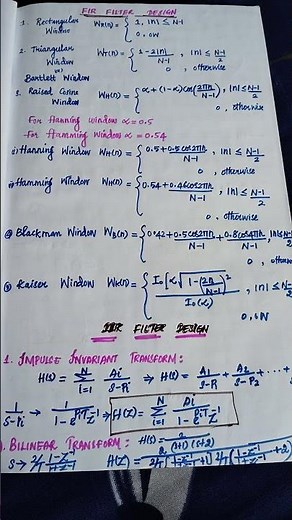 FIR FILTER DESIGN
1. Rectangular Window WR(n) = { 1, |n| ≤ N-1/2
0, ow
2. Triangular Window (or) Bartlett Window WT(n) = { 1-2|n|/N-1, |n| ≤ N-1/2
0, otherwise
3. Raised Cosine Window WH(n) = { α+(1-α)cos(2πn/N-1), |n| ≤ N-1/2
0, otherwise
For Hanning window α=0.5
For Hamming Window α=0.54
i) Hanning Window WH(n) = { 0.5+0.5cos2πn/N-1, |n| ≤ N-1/2
0, otherwise
ii) Hamming Window WH(n) = { 0.54+0.46cos2πn/N-1, |n| ≤ N-1/2
0, otherwise
Blackman Window WB(n) = { 0.42+0.5cos2πn/N-1+0.8cos4πn/N-1, |n| ≤ N-1/2
0, otherwise
Kaiser Window WK(n) = { I0[α√1-(2n/N-1)²]/I0(α), |n| ≤ N-1/2
0, oN
IIR FILTER DESIGN
1. IMPULSE INVARIANT TRANSFORM:
H(s) = N Σ i=1 Ai/s-Pi ⇒ H(s) = A1/s-P1 + A2/s-P2 + ... +
1/s-Pi → 1/1-e^PiT z^-1 ⇒ H(z) = N Σ i=1 Ai/1-e^PiT z^-1
. BILINEAR TRANSFORM: H(s) = 2/(s+1)(s+2)
s → 2/T 1-z^-1/1+z^-1 H(z) = 2/2/T[1-z^-1/1+z^-1 +1] 2/T(1-z^-1/1+z^-1 +2)